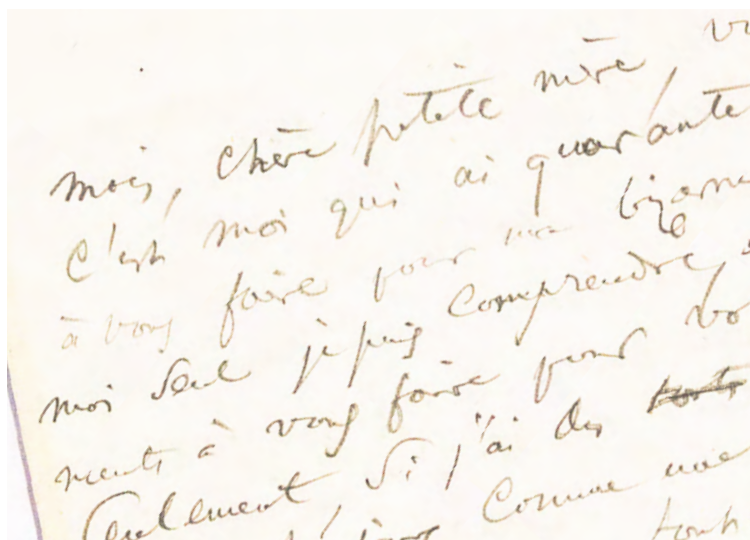 mais, chère petite mère, v
c'est moi qui ai quarante
à vous faire pour ma bizarre
moi seul je puis comprendre,
ments à vous faire pour vo
Seulement, si j'ai des torts
comme une
tout